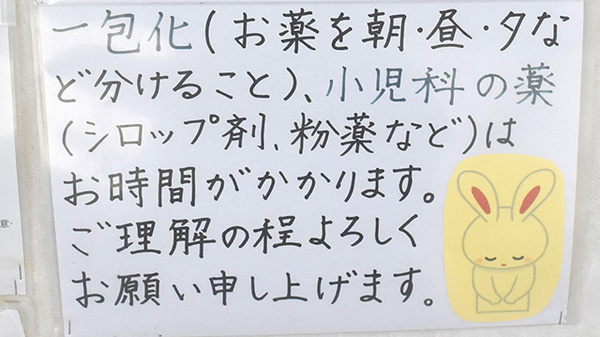 一包化(お薬を朝・昼・夕な
ど分けること)、小児科の薬
(シロップ剤、粉薬など)は
お時間がかかります。
ご理解の程よろしく
お願い申し上げます。
意